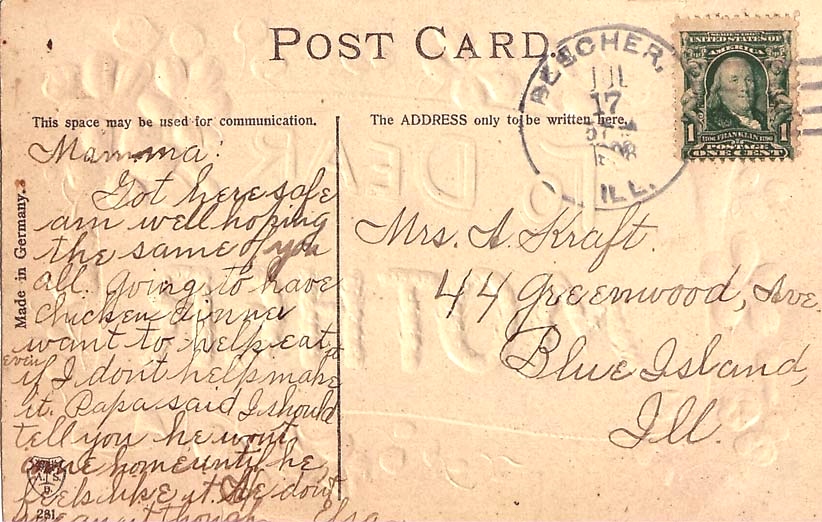 POST CARD.
BEECHER,
JUL
17
1908
ILL.
SERIES 1902
UNITED STATES OF
AMERICA
1 FRANKLIN 1
POSTAGE
ONE CENT
This space may be used for communication.
The ADDRESS only to be written here.
Made in Germany.
TO DEAR
MOTHER
Mamma:
Got here safe
am well hoping
the same of you
all. Going to have
chicken dinner
want to help eat it
even
if I don't help make
it. Papa said I should
tell you he wont
come home until he
feels like it. He don't
mean it though Elsa
Mrs. A. Kraft.
44 Greenwood, Ave.
Blue Island,
Ill.
A.J.S.
281